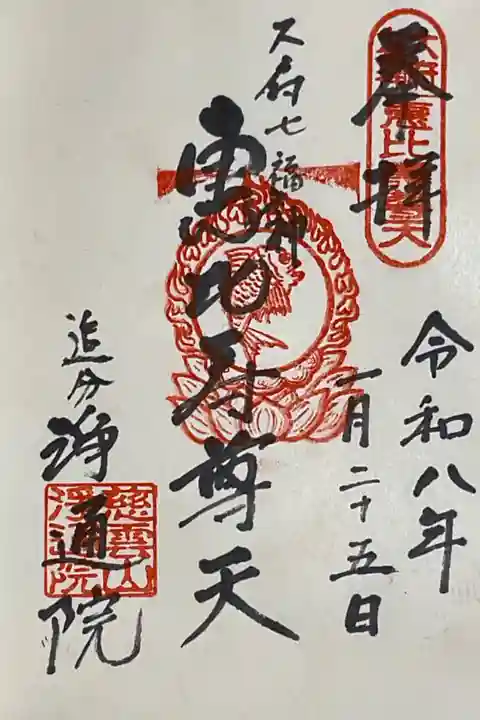 奉拝
大府惠比寿尊天
令和八年
一月二十五日
大府七福神
恵比寿尊天
追分
淨通院
慈雲山
淨通院